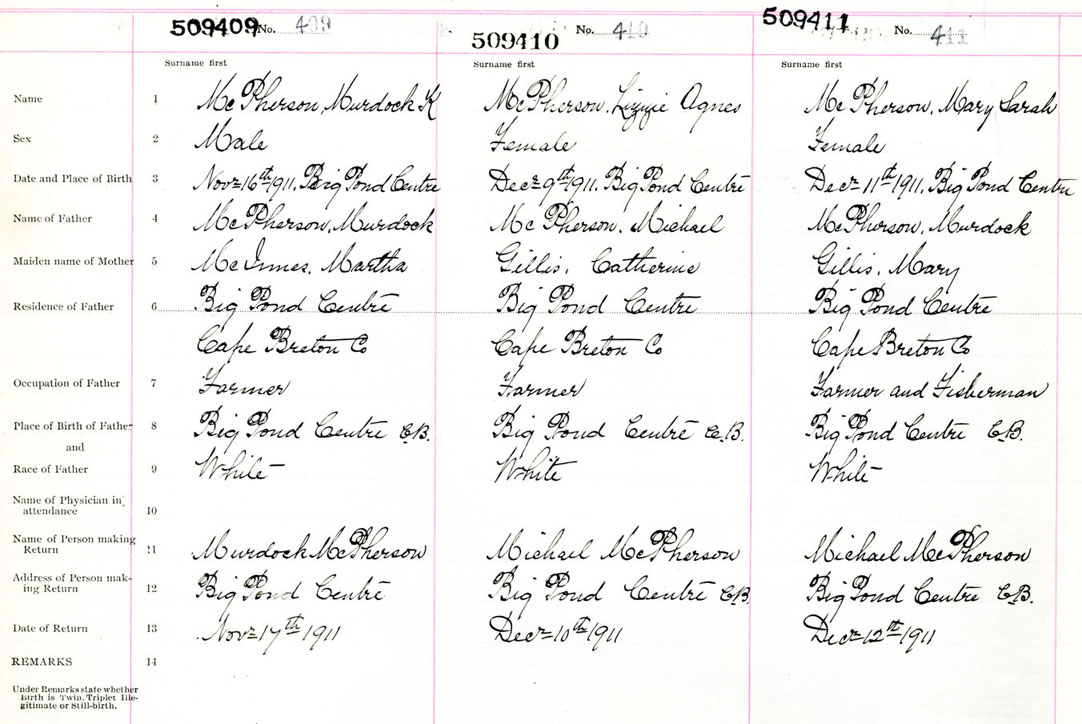 509409 No. 409 509410 No. 410 509411 No. 411
Surname first Surname first Surname first
Name 1 McPherson, Murdock K McPherson, Lizzie Agnes McPherson, Mary Sarah
Sex 2 Male Female Female
Date and Place of Birth 3 Nov= 16th 1911. Big Pond Centre Dec= 9th 1911. Big Pond Centre Dec= 11th 1911. Big Pond Centre
Name of Father 4 McPherson, Murdock McPherson, Michael McPherson, Murdock
Maiden name of Mother 5 McInnes, Martha Gillis, Catherine Gillis, Mary
Residence of Father 6 Big Pond Centre Big Pond Centre Big Pond Centre
Cape Breton Co Cape Breton Co Cape Breton Co
Occupation of Father 7 Farmer Farmer Farmer and Fisherman
Place of Birth of Father 8 Big Pond Centre C.B. Big Pond Centre C.B. Big Pond Centre C.B.
and
Race of Father 9 White White White
Name of Physician in
attendance 10
Name of Person making
Return 11 Murdock McPherson Michael McPherson Michael McPherson
Address of Person mak-
ing Return 12 Big Pond Centre Big Pond Centre C.B. Big Pond Centre C.B.
Date of Return 13 Nov= 17th 1911 Dec= 10th 1911 Dec= 12th 1911
REMARKS 14
Under Remarks state whether
Birth is Twin, Triplet Ille-
gitimate or Still-birth.